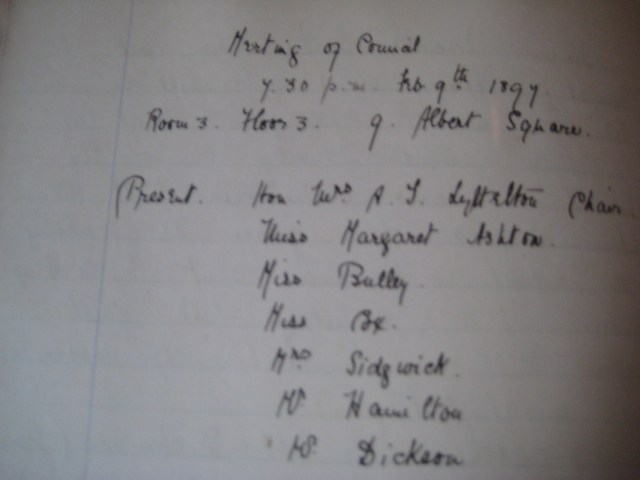 Meeting of Council
7.30 p.m. Feb 9th 1897.
Room 3. Floor 3. 9. Albert Square.
Present. Hon Mrs A. T. Lyttelton Chair
Miss Margaret Ashton.
Miss Bulley.
Miss
Mrs Sidgwick.
Mr Hamilton
Mr. Dickson